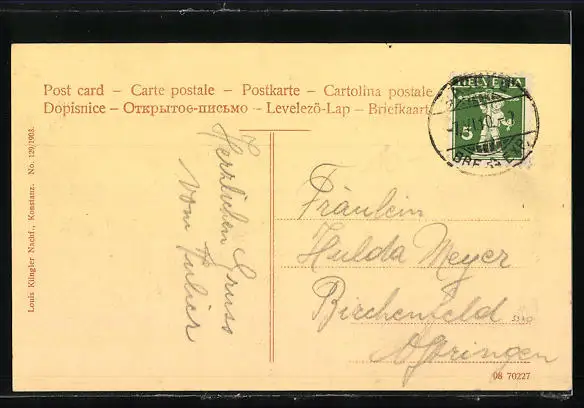 Post card – Carte postale – Postkarte – Cartolina postale
Dopisnice – Открытое-письмо – Levelező-Lap – Briefkaart
HELVETIA
5
Louis Klingler Nachf., Konstanz. No. 129/1908.
Herzlichen Gruss
vom Julier
Fräulein
Hulda Meyer
Birchenfeld
Oftringen
08 70227